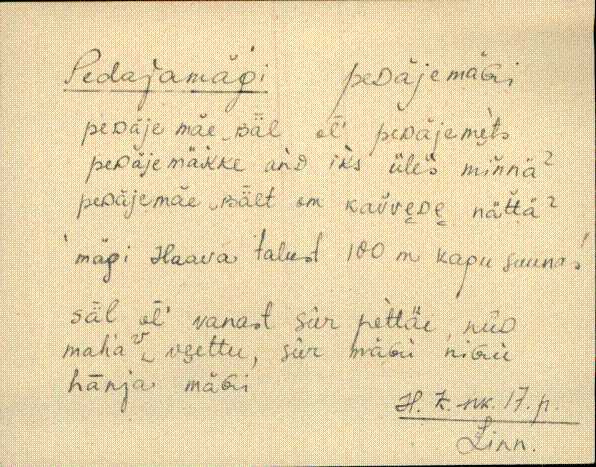 Pedajamägi peᴅäjemäɢi
peᴅäje mäe ʙäl oĺ peᴅäjemets
peᴅäjemäkke aǹᴅ iks üles miǹnä²
peᴅäjemäe ʙält om kaùvẹᴅẹ nättä²
mägi Haava talust 100 m kagu suunas
säl oĺ vanast sùr pèttäi, nüᴅ
maha vẹettu, sùr mäɢi niɢu
hānja mäɢi
H. K. nk. 17. p.
Linn.